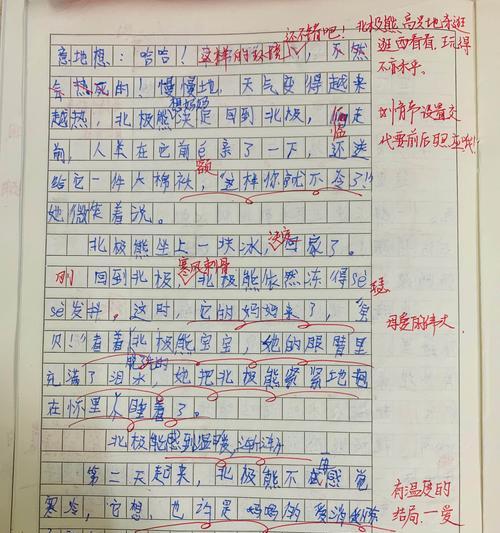 还不错吧！北极熊高兴地东逛
逛西看看，玩得
不亦乐乎。
意地想：哈哈！这样的环境
会热死的！慢慢地，天气变得越来
想妈妈
越热，北极熊决定回到北极，临走
前，人类在它前额亲了一下，还送
给它一件大棉袄，“这样你就不冷了！”
她微笑着说。
情节设置交
代要前后照应哦！
北极熊坐上一块冰，回家了。
寒风刺骨
刚回到北极，北极熊依然冻得sè
瑟
sè发抖。这时，它的妈妈来了，“宝
贝！”看着北极熊宝宝，她的眼睛里
充满了泪水，她把北极熊紧紧地抱
在怀里睡着了。
母爱的伟大
北极熊感到温暖，渐渐
第二天起来，北极熊不再感觉
寒冷，它想，也许是妈妈的爱消除
有温度的
结局—爱